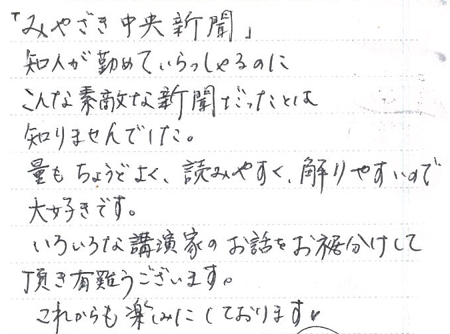 「みやざき中央新聞」
知人が勤めていらっしゃるのに
こんな素敵な新聞だったとは
知りませんでした。
量もちょうどよく、読みやすく、解りやすいので
大好きです。
いろいろな講演家のお話をお裾分けして
頂き有難うございます。
これからも楽しみにしております。